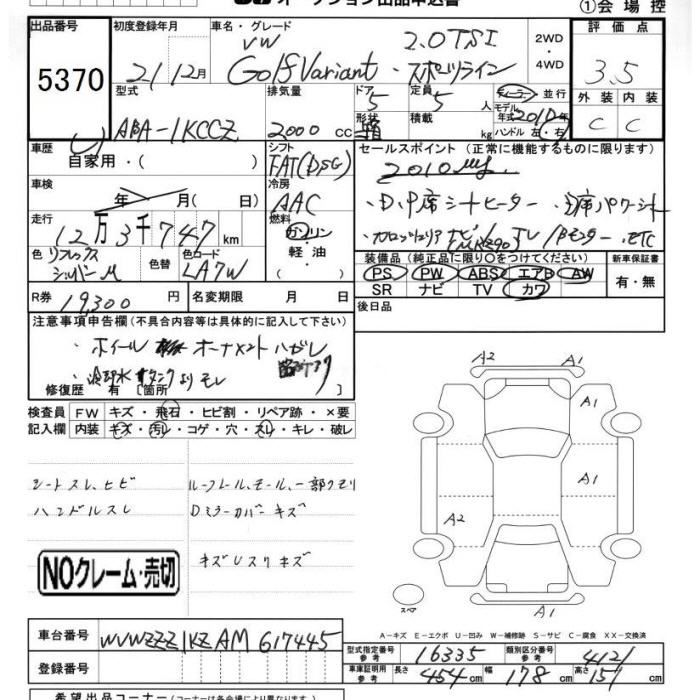 オークション出品申込書
①会場控
出品番号
5370
初度登録年月
21/12月
車名・グレード
VW
Golf Variant・スポーツライン
2.0TSI
2WD
・4WD
評価点
3.5
外装
内装
C
C
型式
ABA-1KCCZ
排気量
2000 CC
ドア
5
形状
定員
5人
積載
kg
ディーラー・並行
モデル年式 2010
ハンドル 左・右
車歴
自家用・(
シフト
FAT(DSG)
セールスポイント(正常に機能するものに限ります)
2010 モデル
・D.P席シートヒーター ・D席パワーシート
車検
年 月( 日)
冷房
AAC
走行
12万3千747km
燃料
ガソリン
・軽油
・カロッツェリア ナビ/TV/Bモニター ・ETC
色
リフレックス
シルバーM
色替
色コード
LA7W
装備品(純正品に限り○をつけてください)
新車保証書
PS・PW・ABS・エアB・AW
SR・ナビ・TV・カワ
有・無
R券
19,300円
名変期限 月 日
後日品
注意事項申告欄(不具合内容等は具体的に記入して下さい)
・ホイール オーナメント ハガレ
・冷却水タンクよりモレ
修復歴 有 [箇所
検査員
記入欄
FW
キズ・飛石・ヒビ割・リペア跡・×要
内装
キズ・汚レ・コゲ・穴・スレ・キレ・破レ
シートスレ、ヒビ
ルーフレール、モール、一部クモリ
ハンドルスレ
Dミラーカバーキズ
キズUスリキズ
NOクレーム・売切
A2
A1
A1
A1
A2
A1
スペア
A-キズ E-エクボ U-凹み W-補修跡 S-サビ C-腐食 XX-交換済
車台番号
WVWZZZ1KZAM617445
登録番号
型式指定番号
参考
16335
類別区分番号
参考
4121
車庫証明用
参考
長さ
454cm
幅
178cm
高さ
151cm
希望出品コーナー